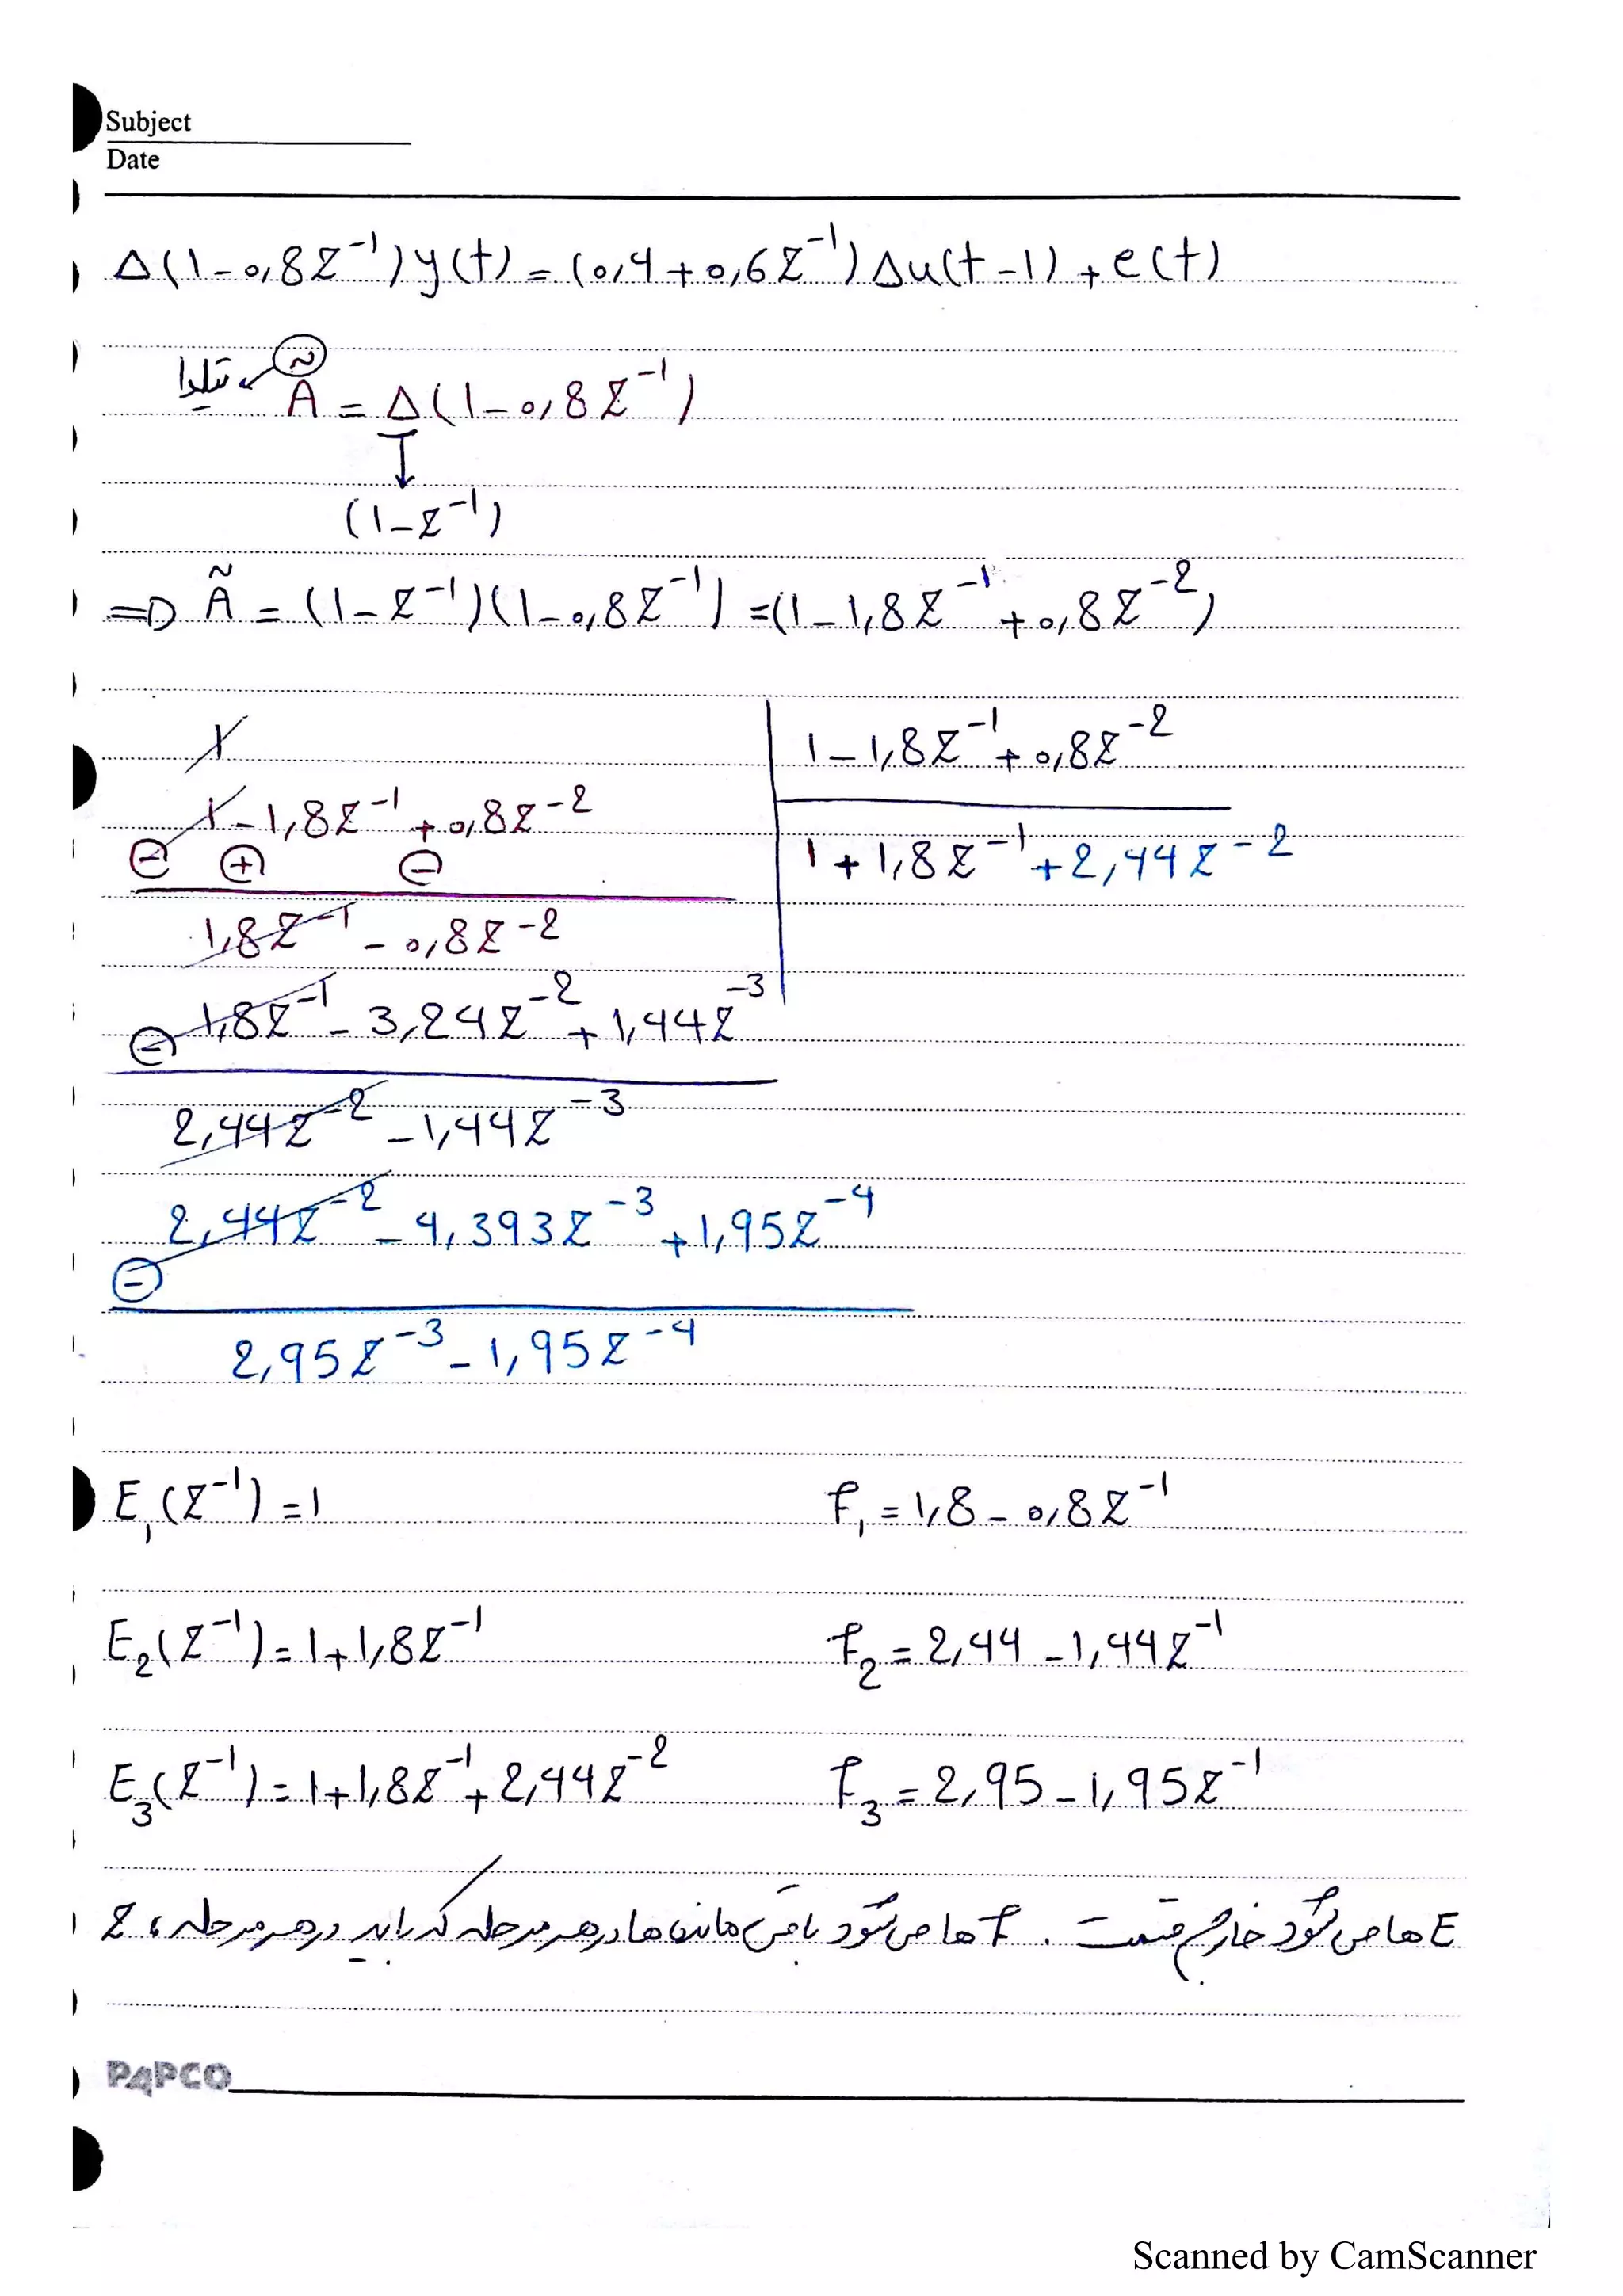 Subject
Date
Δ(1-0,8Z⁻¹)y(t) = (0,4+0,6Z⁻¹)Δu(t-1)+e(t)
تیلدا
Ã = Δ(1-0,8Z⁻¹)
(1-Z⁻¹)
⇒ Ã = (1-Z⁻¹)(1-0,8Z⁻¹) = (1-1,8Z⁻¹+0,8Z⁻²)
1
1-1,8Z⁻¹+0,8Z⁻²
1-1,8Z⁻¹+0,8Z⁻²
1+1,8Z⁻¹+2,44Z⁻²
⊖ ⊕ ⊖
1,8Z⁻¹-0,8Z⁻²
⊖ 1,8Z⁻¹-3,24Z⁻²+1,44Z⁻³
2,44Z⁻²-1,44Z⁻³
2,44Z⁻²-4,393Z⁻³+1,95Z⁻⁴
⊖
2,95Z⁻³-1,95Z⁻⁴
E₁(Z⁻¹)=1 f₁=1,8-0,8Z⁻¹
E₂(Z⁻¹)=1+1,8Z⁻¹ f₂=2,44-1,44Z⁻¹
E₃(Z⁻¹)=1+1,8Z⁻¹+2,44Z⁻² f₃=2,95-1,95Z⁻¹
E ها می شود خارج قسمت . f ها می شود باقی مانده ها در هر مرحله که باید در هر مرحله ، Z
PAPCO
Scanned by CamScanner